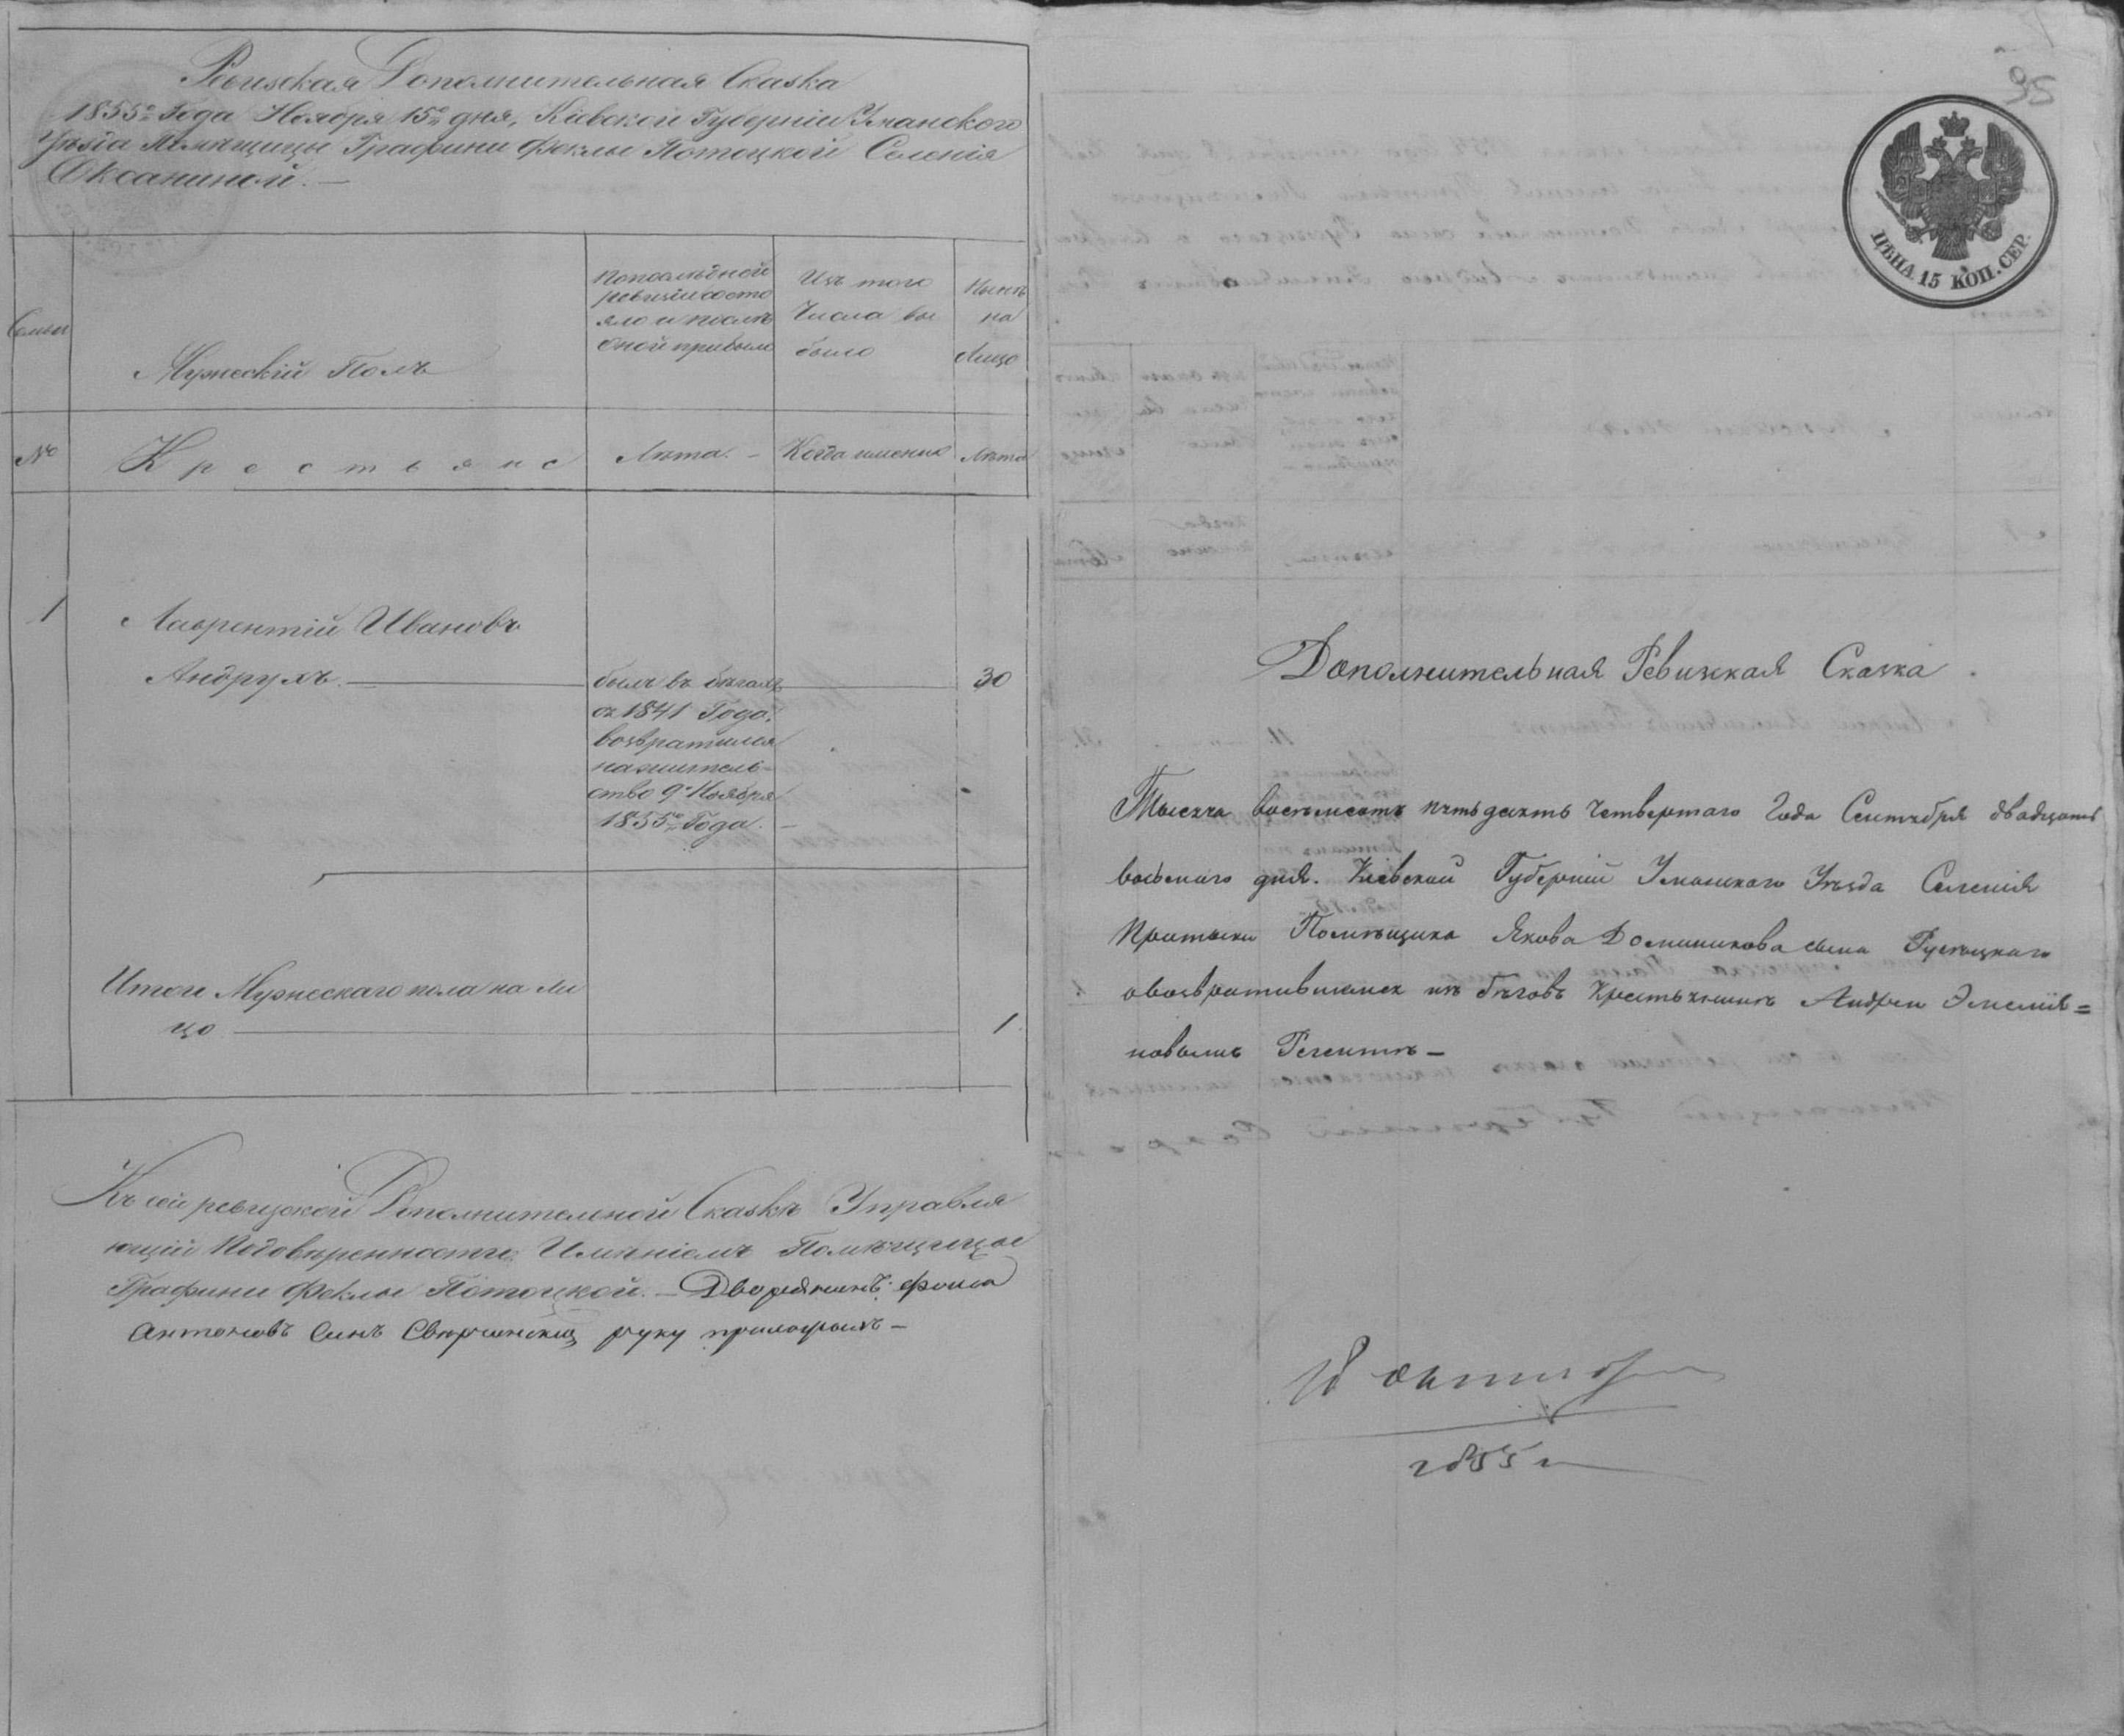 Ревизская Дополнительная Сказка
1855го Года Ноября 15го дня, Кіевской Губерніи Уманского
Уѣзда Помѣщицы Графини Феклы Потоцкой Селенія
Оксаниной. —
Семьи
Мужескій Полъ
По послѣдной
ревизіи состо
яло и послѣ
оной прибыло
Изъ того
Числа вы
было
Нынѣ
на
Лицо
№
Крестьяне
Лѣта. —
Когда имѣнно
Лѣта
1
Лаврентій Ивановъ
Андрухъ
былъ въ бѣгахъ
съ 1841 Года.
возвратился
на житель-
ство 9го Ноября
1855го Года. —
30
Итого Мужескаго пола на ли
цо
1
Къ сей ревизской Дополнительной Сказкѣ Управля
ющій По довѣренности Имѣніемъ Помѣщицы
Графини Феклы Потоцкой. — Дворянинъ Фома
Антоновъ Синъ руку приложилъ —
95
ЦѢНА 15 КОП. СЕР.
Дополнительная Ревизская Сказка
Тысяча восемьсотъ пятьдесятъ четвертаго Года Сентября двадцать
восьмаго дня. Кіевской Губерніи Уманскаго Уѣзда Селенія
Помѣщика Якова Доминикова сына Русѣцкаго
о возвратившемся изъ бѣговъ Крестьянинѣ Андреи Эмелія=
новымъ Регентѣ —
1855 г